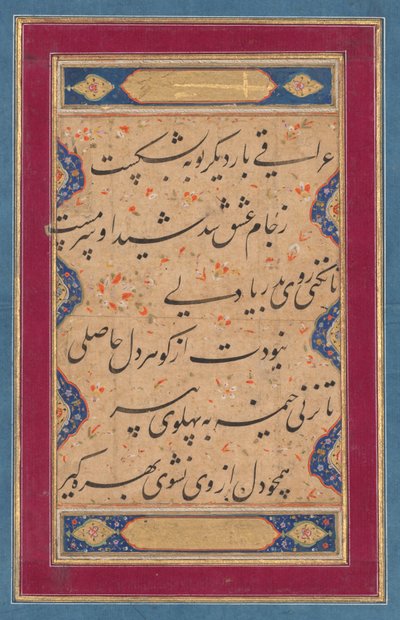 عراقی بار دیگر توبه بشکست
ز جام عشق شد شیدا و سرمست
تا نکنی روی بدریا دلی
نبودت از گوهر دل حاصلی
تا نزنی خیمه به پهلوی پیر
همچو دل از وی نشوی بهره گیر